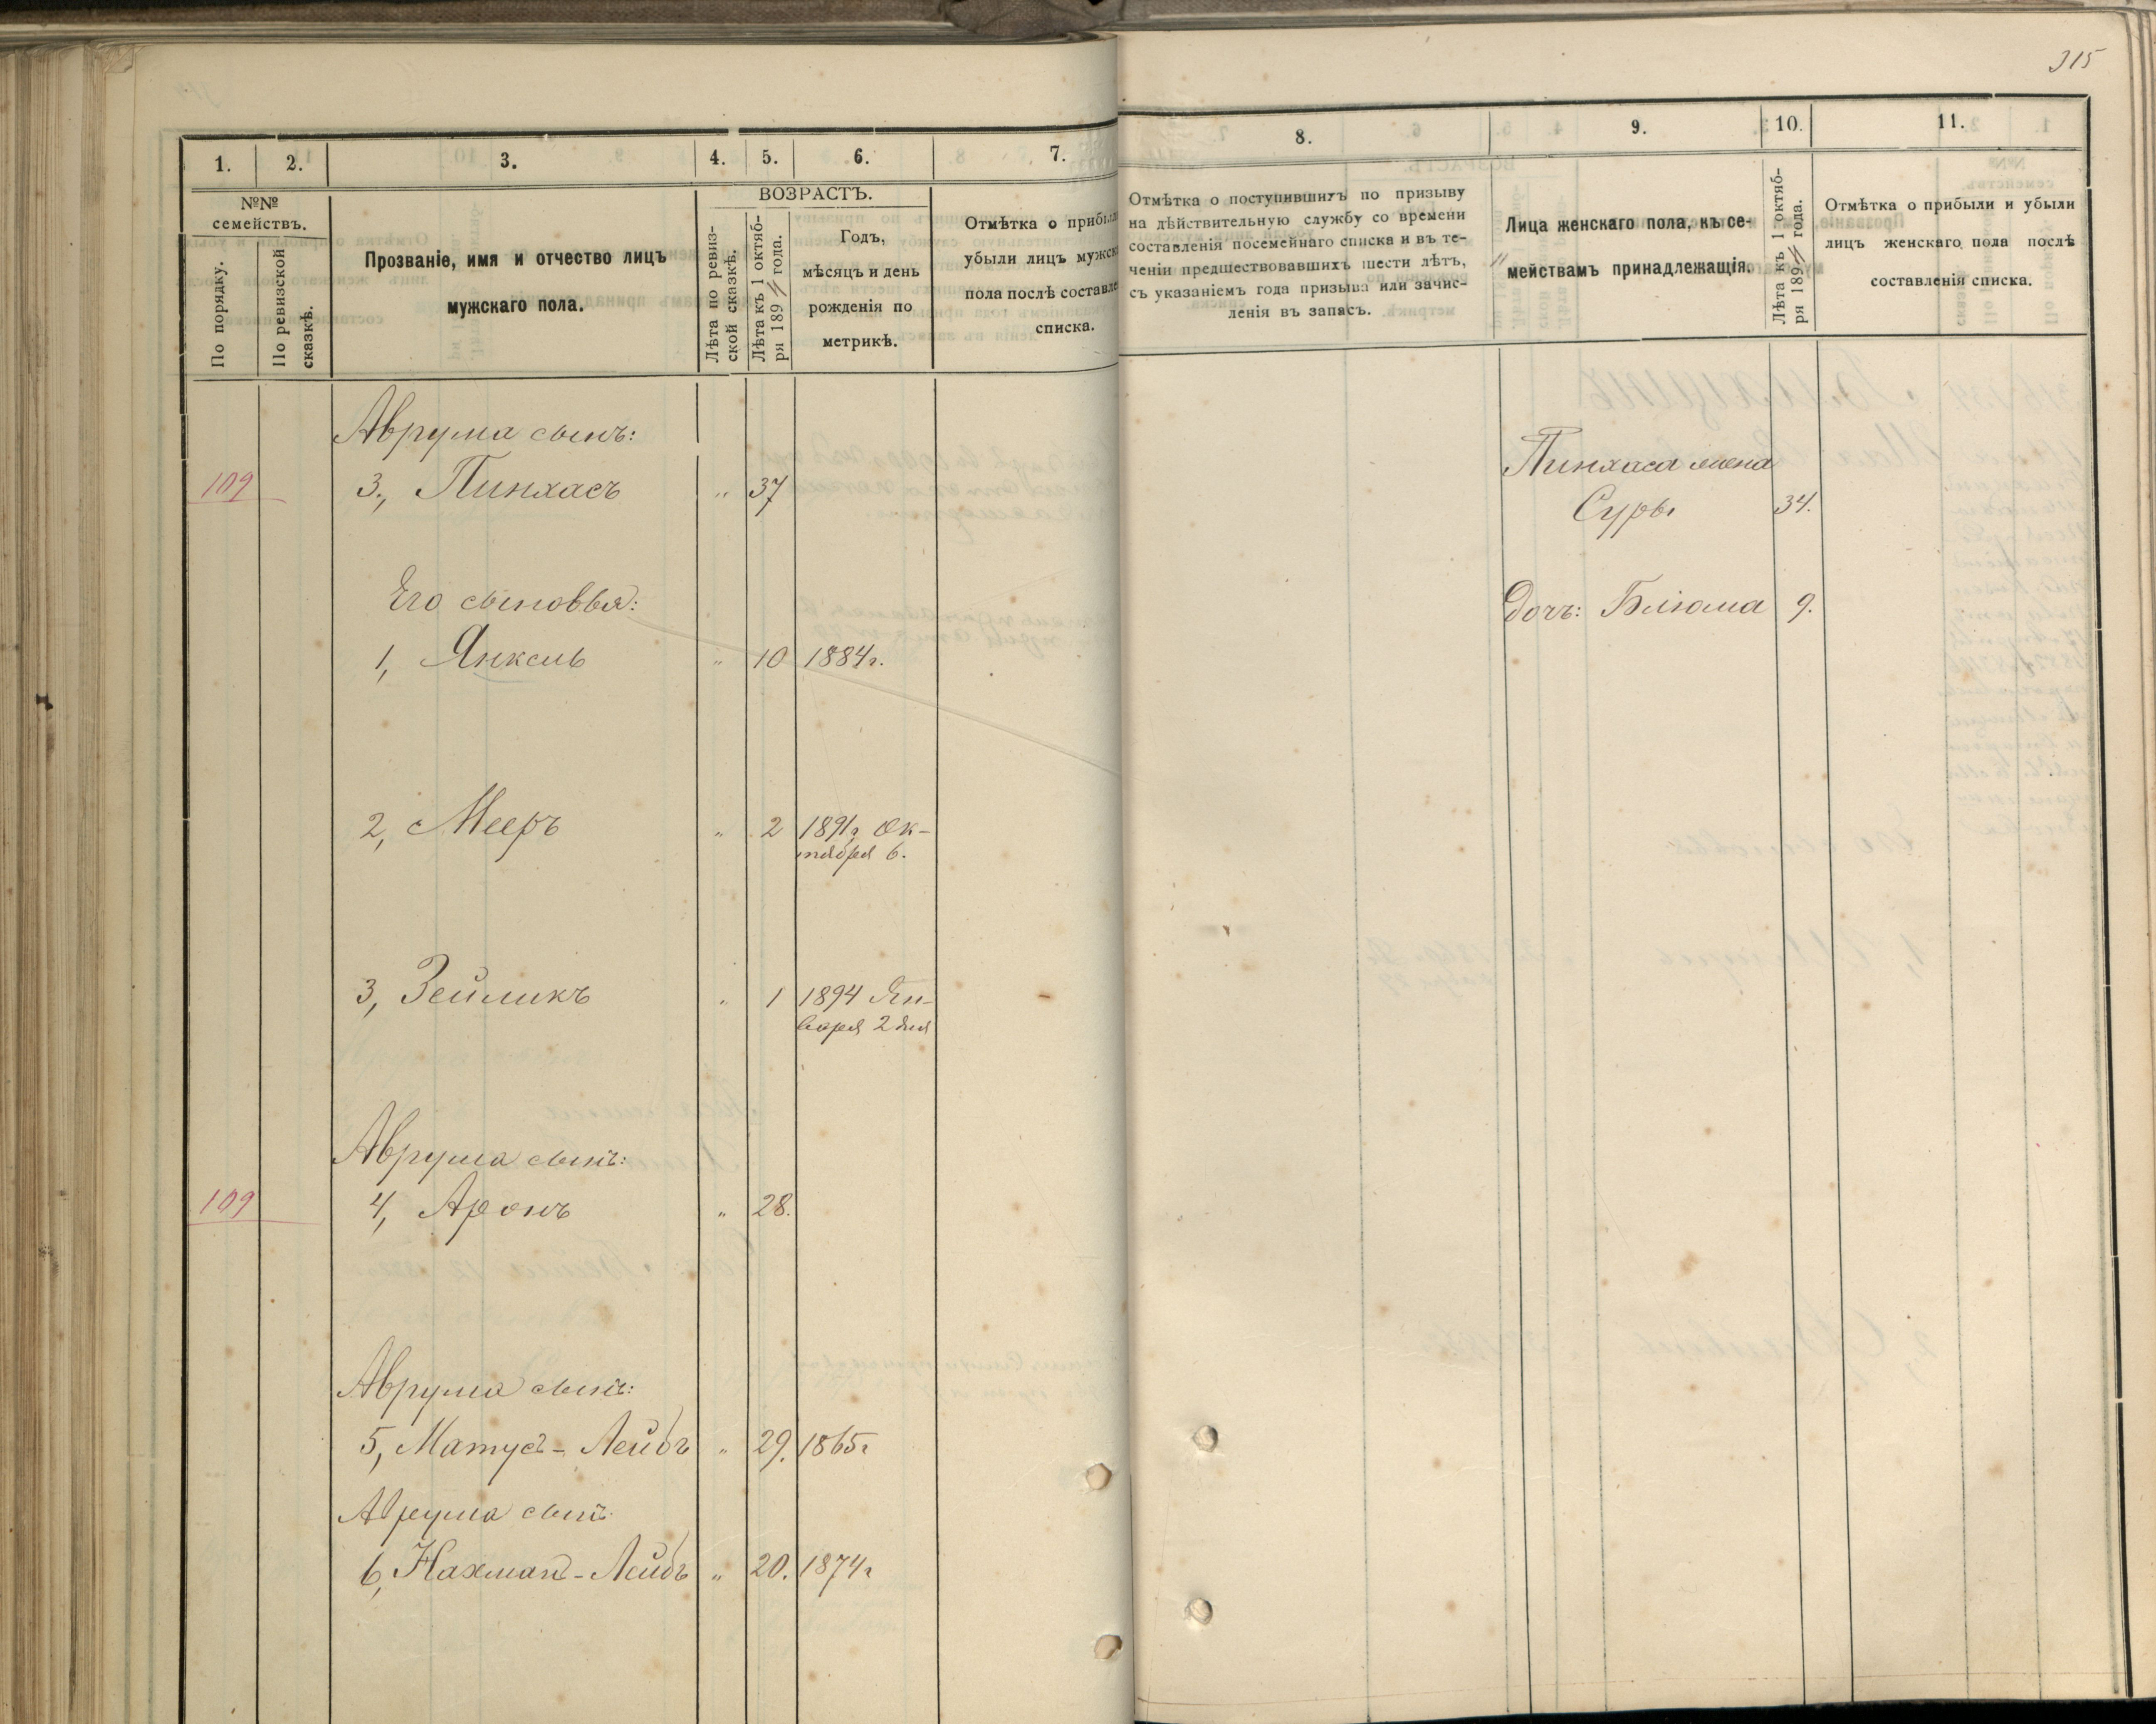 315
1. 2. 3. 4. 5. 6. 7. 8. 9. 10. 11.
№№ семействъ.
По порядку.
По ревизской сказкѣ.
Прозваніе, имя и отчество лицъ
мужскаго пола.
ВОЗРАСТЪ.
Лѣта по ревиз-
ской сказкѣ.
Лѣта къ 1 октяб-
ря 189 4 года.
Годъ,
мѣсяцъ и день
рожденія по
метрикѣ.
Отмѣтка о прибыли
убыли лицъ мужск
пола послѣ составле
списка.
Отмѣтка о поступившихъ по призыву
на дѣйствительную службу со времени
составленія посемейнаго списка и въ те-
ченіи предшествовавшихъ шести лѣтъ,
съ указаніемъ года призыва или зачис-
ленія въ запасъ.
Лица женскаго пола, къ се-
мействамъ принадлежащія.
Лѣта къ 1 октяб-
ря 189 4 года.
Отмѣтка о прибыли и убыли
лицъ женскаго пола послѣ
составленія списка.
Аврума сынъ:
109 3, Пинхасъ " 37
Его сыновья:
1, Янкель " 10 1884г.
2, Мееръ " 2 1891г. Ок-
тября 6.
3, Зейликъ " 1 1894 Ян-
варя 2 дня
Аврума сынъ:
109 4, Аронъ " 28.
Аврума сынъ:
5, Матусъ-Лейбъ " 29. 1865г
Аврума сынъ:
6, Нахманъ-Лейбъ " 20. 1874г
Пинхаса жена
Суры 34.
Дочь: Блюма 9.